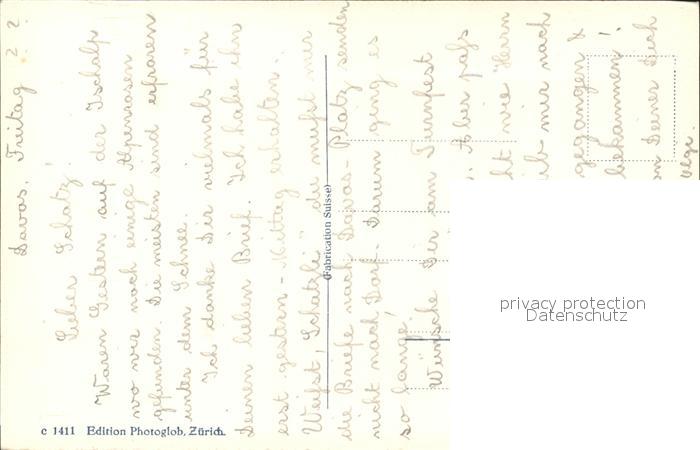 Davos, Freitag
Lieber Schatz!
Waren Gestern auf der Ischalp
wo wir noch einige Alpenrosen
gefunden. Die meisten sind erfroren
unter dem Schnee.
Ich danke Dir vielmals für
Deinen lieben Brief. Ich habe ihn
erst gestern-Mittag erhalten.
Weißt, Schatzli du mußt mir
die Briefe nach Davos-Platz senden
nicht nach Dorf. Darum ging es
so lange!
Wünsche Dir am Turnfest
Aber pass
ht wie Herrn
ib mir nach
gegangen &
bekommen!
n Deiner Dich
(Fabrication Suisse)
c 1411 Edition Photoglob, Zürich.
privacy protection
Datenschutz